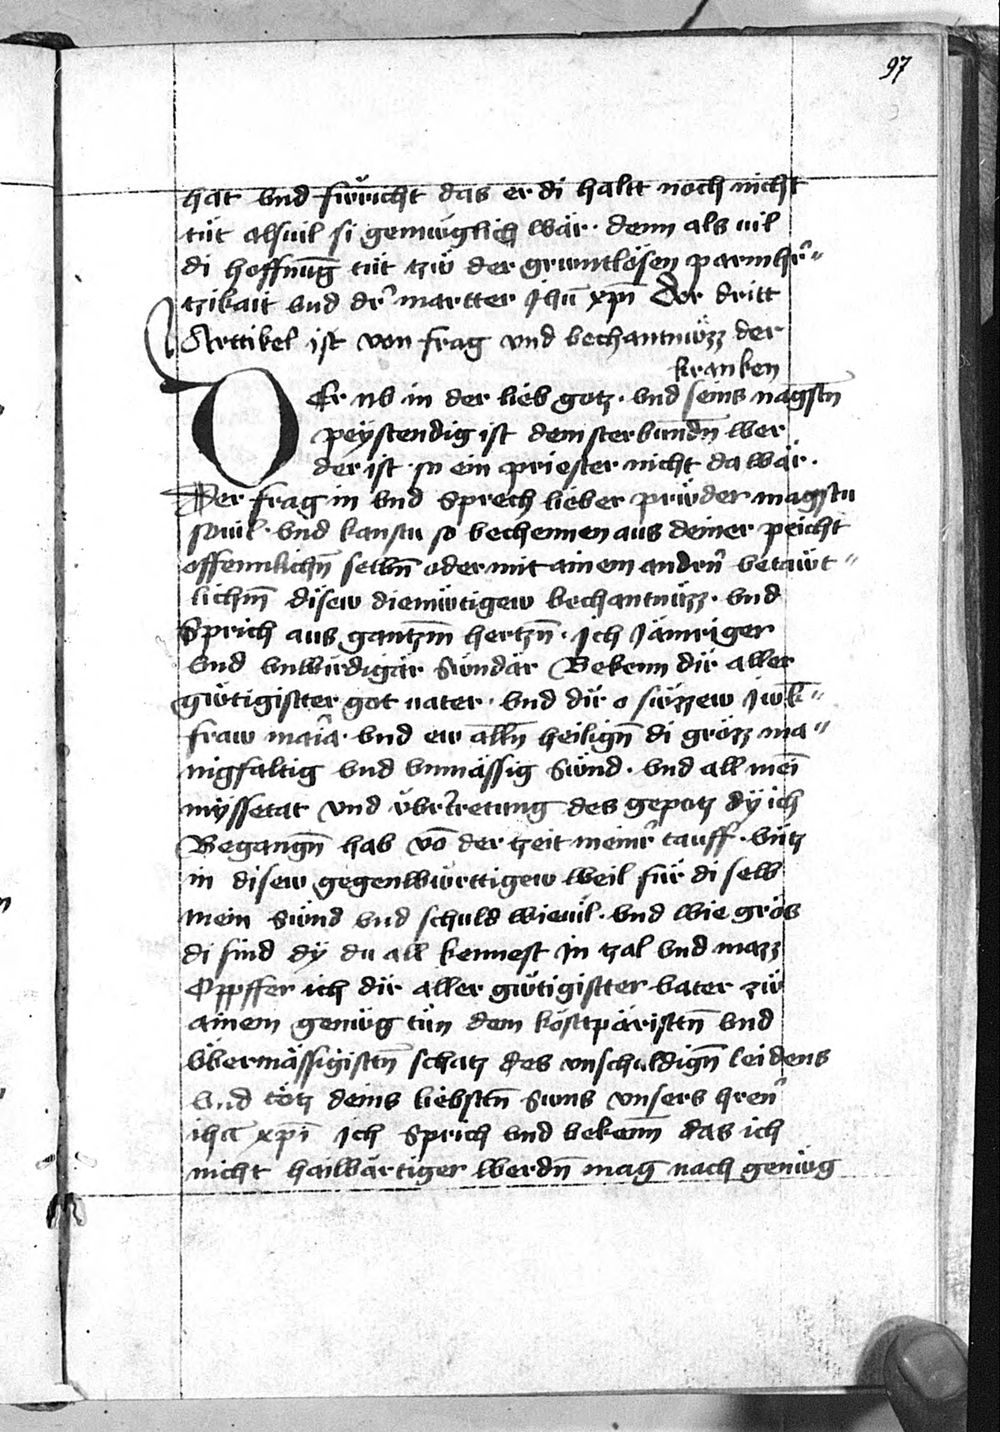 97
hat vnd fürücht das er di haltt noch nicht
tüt alsuil si genüglich wär · denn als uil
di hoffnūg tüt tzü der gruntlösen parmhr̄=
tzikait vnd dr̄ martter ihū xpī Der dritt
Arttikel ist von frag vnd bechantnüzz der
kranken
Er nb in der lieb gotz · vnd seins nagstn̄
peÿstendig ist dem sterbundn̄ wer
der ist · so ein priester nicht da wär ·
Der frag in vnd Sprech lieber prüder magstu
souil · vnd kanstu so bechennen aus deiner peicht
offennlichn̄ selbn̄ oder mit ainem andrn̄ betäwt=
lichm̄ disew diemütigew bechantnüzz · vnd
Sprich aus gantzm̄ hertzn̄ · Ich Jämriger
vnd vnwirdigär Sündär Bekenn dir aller
gütigistter got uater · vnd dir o süzzew Jūk=
fraw maīa · vnd ew alln̄ heilign̄ di grözz ma=
nigfaltig vnd vnmässig Sünd · vnd all mēi
mÿssetat vnd übrtretung des gepotz dÿ ich
Begangn̄ hab vō der tzeit meinr̄ tauff · vntz
in disew gegenwürttigew weil für di selb
mein Sünd vnd schuld wieuil · vnd wie grös
di sind dÿ du all kennest in tzal vnd mazz
Opffer ich dir aller gütigistter vater zü
ainem genüg tün dem kösttpäristtn̄ vnd
Übermässigisttn̄ schatz des vnschuldign̄ leidens
vnd tötz deins liebsttn̄ Suns vnsers hren̄
ihū xpī Ich Sprich vnd bekenn̄ das ich
nicht hailwärtiger werdn̄ mag nach genüg